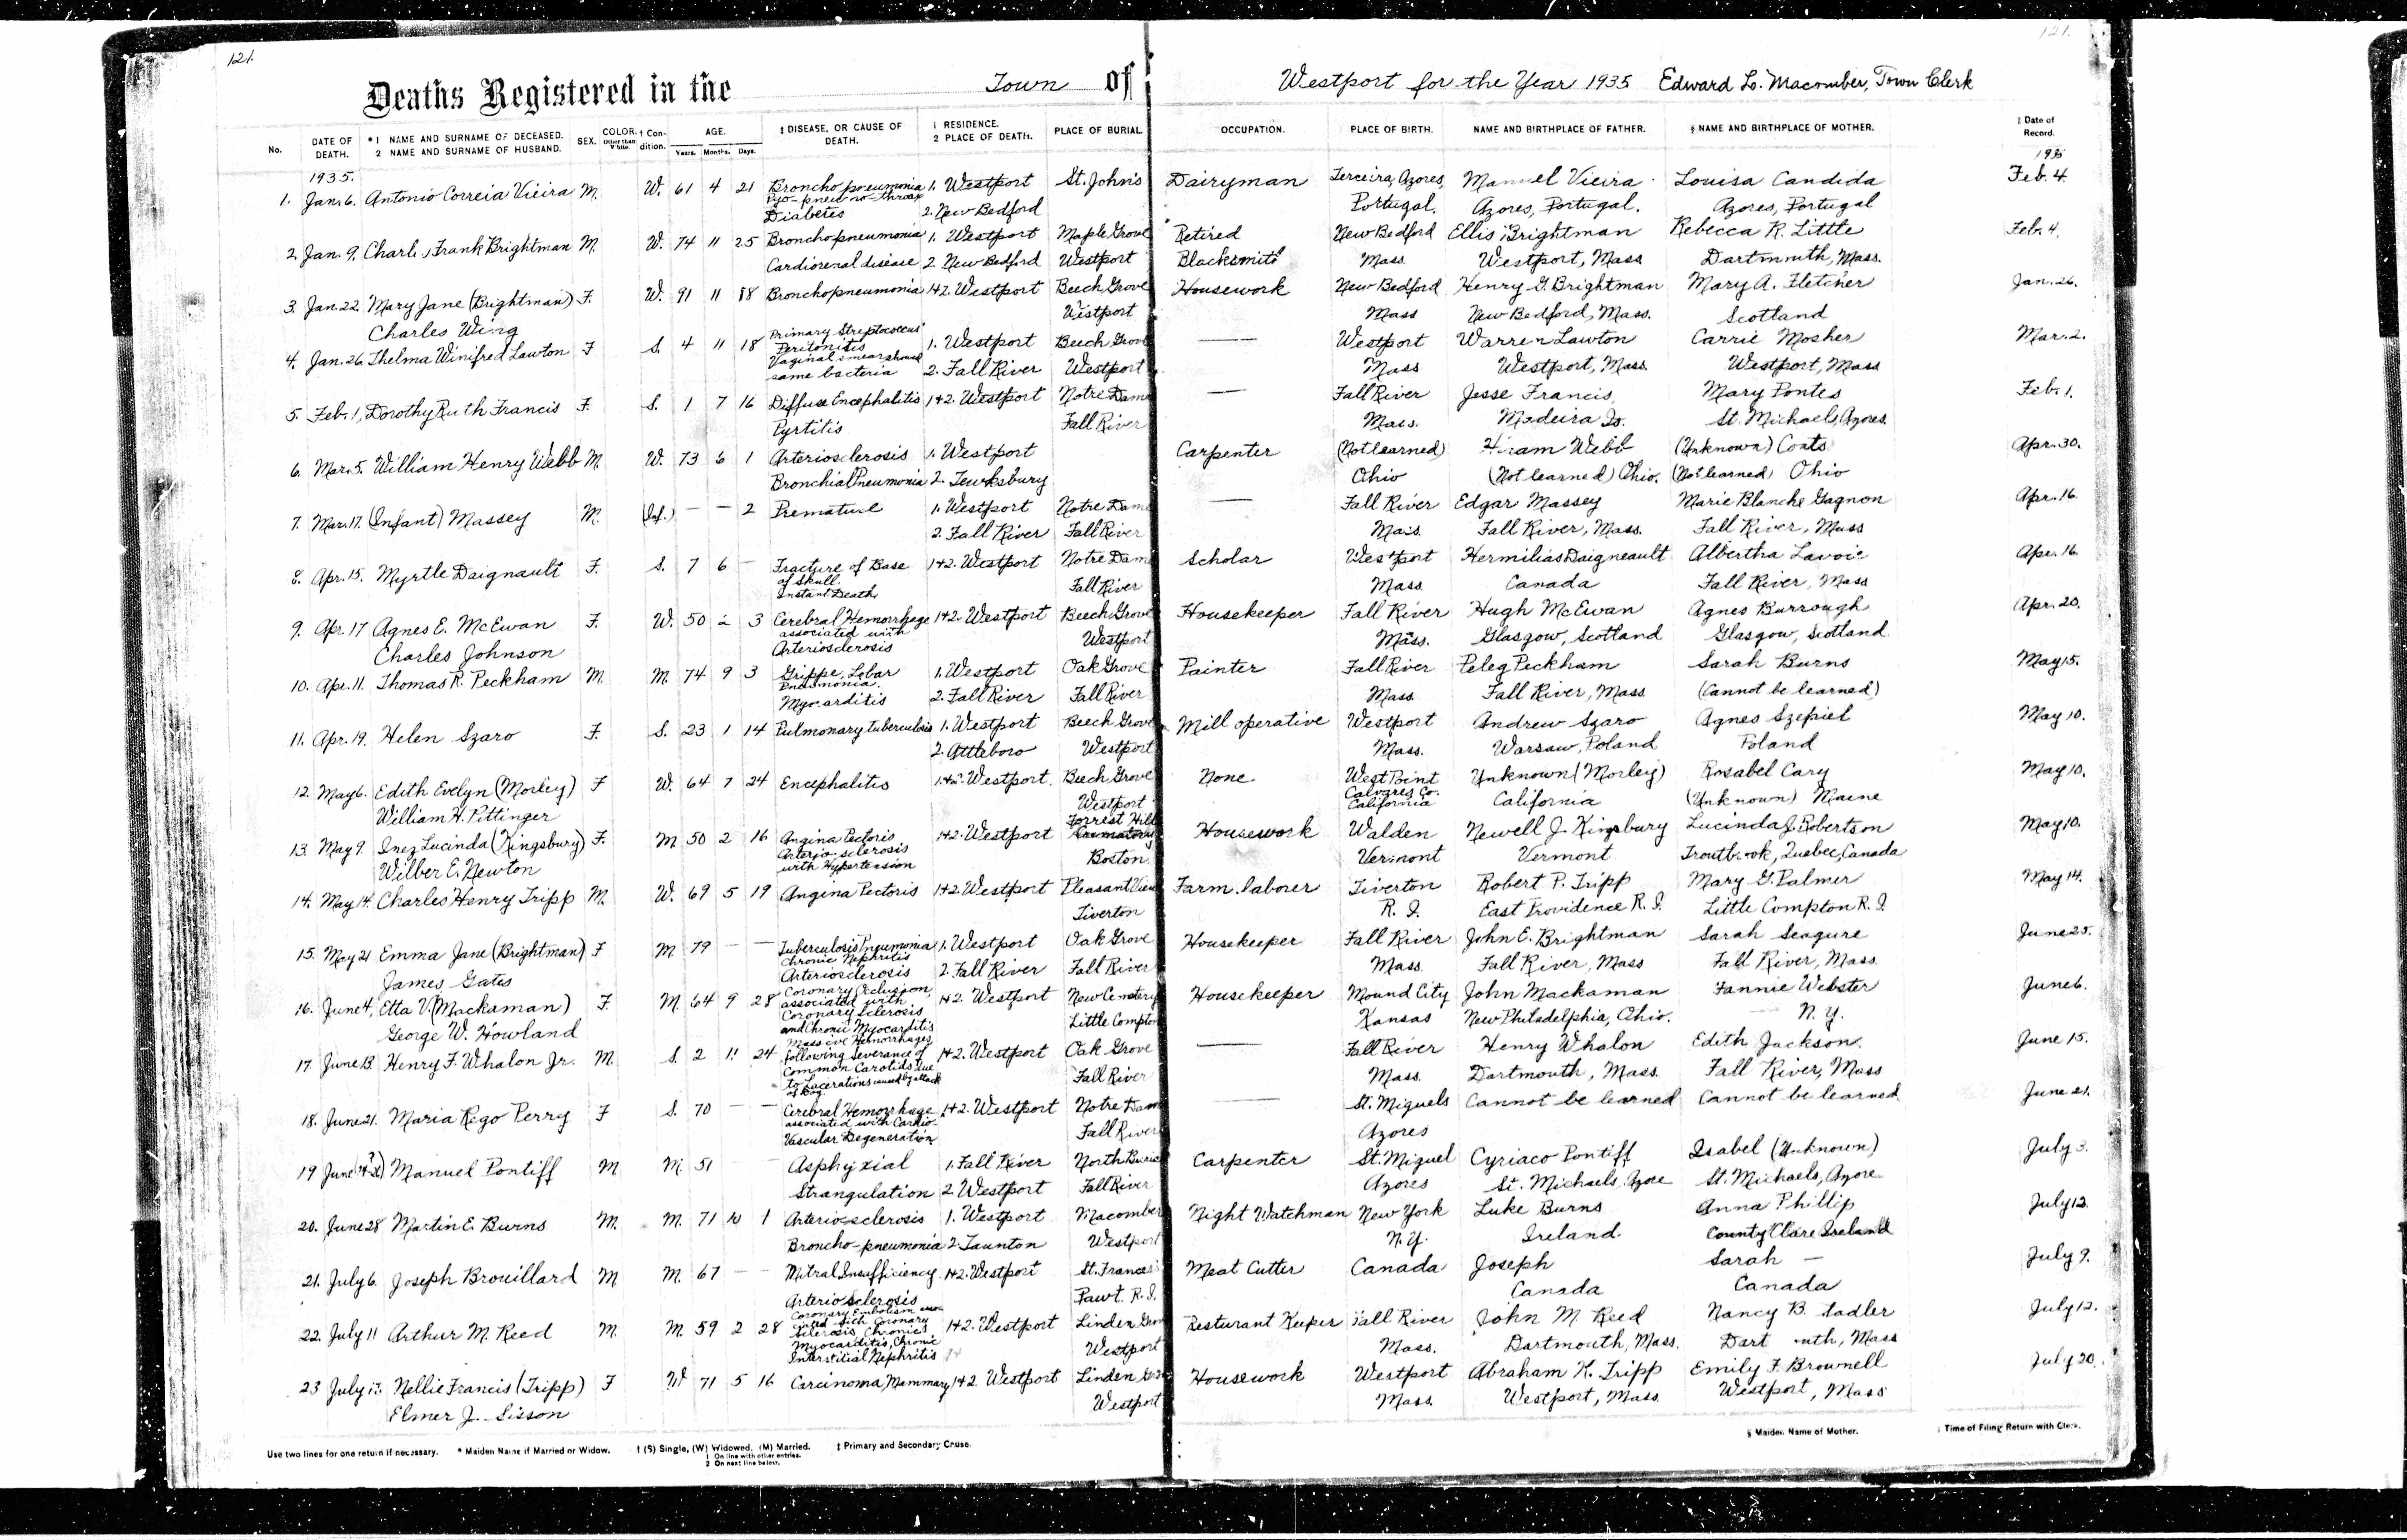 121.
121.
Deaths Registered in the Town of Westport for the Year 1935 Edward L. Macomber, Town Clerk
No. DATE OF DEATH. *1 NAME AND SURNAME OF DECEASED. 2 NAME AND SURNAME OF HUSBAND. SEX. COLOR. Other than White. † Condition. AGE. Years. Months. Days. ‡ DISEASE, OR CAUSE OF DEATH. 1 RESIDENCE. 2 PLACE OF DEATH. PLACE OF BURIAL. OCCUPATION. PLACE OF BIRTH. NAME AND BIRTHPLACE OF FATHER. § NAME AND BIRTHPLACE OF MOTHER. ‖ Date of Record.
1935. 1935
1. Jan. 6. Antonio Correia Vieira M. W. 61 4 21 Broncho pneumonia 1. Westport St. John's Dairyman Terceira, Azores, Manuel Vieira Louisa Candida Feb. 4.
Diabetes 2. New Bedford Portugal. Azores, Portugal. Azores, Portugal
2. Jan. 9. Frank Brightman M. W. 74 11 25 Bronchopneumonia 1. Westport Maple Grove Retired New Bedford Ellis Brightman Rebecca R. Little Feb. 4.
Cardiorenal disease 2. New Bedford Westport Blacksmith Mass. Westport, Mass Dartmouth, Mass.
3. Jan. 22. Mary Jane (Brightman) F. W. 91 11 Bronchopneumonia 1+2. Westport Beech Grove Housework New Bedford Henry G. Brightman Mary A. Fletcher Jan. 26.
Charles Wing Westport Mass New Bedford, Mass. Scotland
4. Jan. 26. Thelma Winifred Lawton F S. 4 11 18 Primary Streptococcus Peritonitis 1. Westport Beech Grove — Westport Warren Lawton Carrie Mosher Mar. 2.
Vaginal smear showed same bacteria 2. Fall River Westport Mass Westport, Mass. Westport, Mass
5. Feb. 1, Dorothy Ruth Francis F. S. 1 7 16 Diffuse Encephalitis 1+2. Westport Notre Dame — Fall River Jesse Francis, Mary Pontes Feb. 1.
Pyrtitis Fall River Mass. Madeira Is. St. Michaels, Azores.
6. Mar. 5. William Henry Webb M. W. 73 6 1 Arteriosclerosis 1. Westport Carpenter (Not learned) Webb (Unknown) Coats Apr. 30.
Bronchial Pneumonia 2. Tewksbury Ohio (Not learned) Ohio. (Not learned) Ohio
7. Mar. 17. (Infant) Massey M. (Inf.) — — 2 Premature 1. Westport Notre Dame — Fall River Edgar Massey Marie Blanche Gagnon Apr. 16.
2. Fall River Fall River Mass. Fall River, Mass. Fall River, Mass
8. Apr. 15. Myrtle Daignault F. S. 7 6 — Fracture of Base of Skull. 1+2. Westport Notre Dame Scholar Westport Hermilias Daigneault Albertha Lavoie Apr. 16.
Instant Death. Fall River Mass. Canada Fall River, Mass
9. Apr. 17 Agnes E. McEwan F. W. 50 2 3 Cerebral Hemorrhage associated with 1+2. Westport Beech Grove Housekeeper Fall River Hugh McEwan Agnes Burrough Apr. 20.
Charles Johnson Arteriosclerosis Westport Mass. Glasgow, Scotland Glasgow, Scotland.
10. Apr. 11. Thomas R. Peckham M. M. 74 9 3 Grippe, Lobar Pneumonia. 1. Westport Oak Grove Painter Fall River Peleg Peckham Sarah Burns May 15.
Myocarditis 2. Fall River Fall River Mass. Fall River, Mass (Cannot be learned)
11. Apr. 19. Helen Szaro F. S. 23 1 14 Pulmonary tuberculosis 1. Westport Beech Grove Mill operative Westport Andrew Szaro Agnes Szepiel May 10.
2. Attleboro Westport Mass. Warsaw, Poland Poland
12. May 6. Edith Evelyn (Morley) F W. 64 7 24 Encephalitis 1+2. Westport. Beech Grove None West Point Unknown (Morley) Rosabel Cary May 10.
William H. Pittinger Westport California California (Unknown) Maine
13. May 9 Inez Lucinda (Kingsbury) F. M 50 2 16 Angina Pectoris 1+2. Westport Forrest Hill Housework Walden Newell J. Kingsbury Lucinda J. Robertson May 10.
Wilber E. Newton Arterio-sclerosis with Hypertension Boston. Vermont Vermont Troutbrook, Quebec, Canada
14. May 14. Charles Henry Tripp M. W. 69 5 19 Angina Pectoris 1+2. Westport Pleasant View Farm laborer Tiverton Robert P. Tripp Mary G. Palmer May 14.
Tiverton R. I. East Providence R. I. Little Compton R. I.
15. May 21 Emma Jane (Brightman) F M 79 — — Tuberculosis Pneumonia Chronic Nephritis 1. Westport Oak Grove Housekeeper Fall River John E. Brightman Sarah Seagure June 25.
James Gates Arteriosclerosis 2. Fall River Fall River Mass. Fall River, Mass Fall River, Mass.
16. June 4, Etta V. (Mackaman) F. M. 64 9 28 Coronary Occlusion, associated with 1+2. Westport New Cemetery Housekeeper Mound City John Mackaman Fannie Webster June 6.
George W. Howland Coronary Sclerosis and Chronic Myocarditis Little Compton Kansas New Philadelphia, Ohio. N. Y.
17. June 13. Henry F. Whalon Jr. M. S. 2 11 24 Massive Hemorrhages following severance of 1+2. Westport Oak Grove — Fall River Henry Whalon Edith Jackson. June 15.
Common Carotids due to Lacerations caused by attack of Dog. Fall River Mass. Dartmouth, Mass. Fall River, Mass
18. June 21. Maria Rego Perry F S. 70 — — Cerebral Hemorrhage 1+2. Westport Notre Dame — St. Miguels Cannot be learned Cannot be learned June 21.
associated with Cardio-Vascular Degeneration Fall River Azores
19 June Manuel Pontiff M M. 51 Asphyxial 1. Fall River North Burial Carpenter St. Miguel Cyriaco Pontiff Isabel (Unknown) July 3.
Strangulation 2. Westport Fall River Azores St. Michaels, Azore St. Michaels, Azore
20. June 28 Martin E. Burns M. M. 71 10 1 Arteriosclerosis 1. Westport Macomber Night Watchman New York Luke Burns Anna Phillip July 12.
Broncho-pneumonia 2. Taunton Westport N.Y. Ireland. County Clare Ireland
21. July 6. Joseph Brouillard M M. 67 — — Mitral Insufficiency 1+2. Westport St. Frances Meat Cutter Canada Joseph Sarah — July 9.
Arterio sclerosis Pawt. R. I. Canada Canada
22. July 11 Arthur M. Reed M. M. 59 2 28 Coronary Embolism with Coronary Sclerosis, Chronic 1+2. Westport Linden Grove Resturant Keeper Fall River John M. Reed Nancy B. July 12.
Myocarditis, Chronic Interstitial Nephritis Westport Mass. Dartmouth, Mass. Mass
23 July Nellie Francis (Tripp) F W 71 5 16 Carcinoma, Mammary 1+2. Westport Linden Grove Housework Westport Abraham K. Tripp Emily F. Brownell July 20.
Elmer J. Sisson Westport Mass. Westport, Mass. Westport, Mass
Use two lines for one return if necessary. * Maiden Name if Married or Widow. † (S) Single, (W) Widowed, (M) Married. ‡ Primary and Secondary Cause. § Maiden Name of Mother. ‖ Time of Filing Return with Clerk.
1 On line with other entries.
2 On next line below.